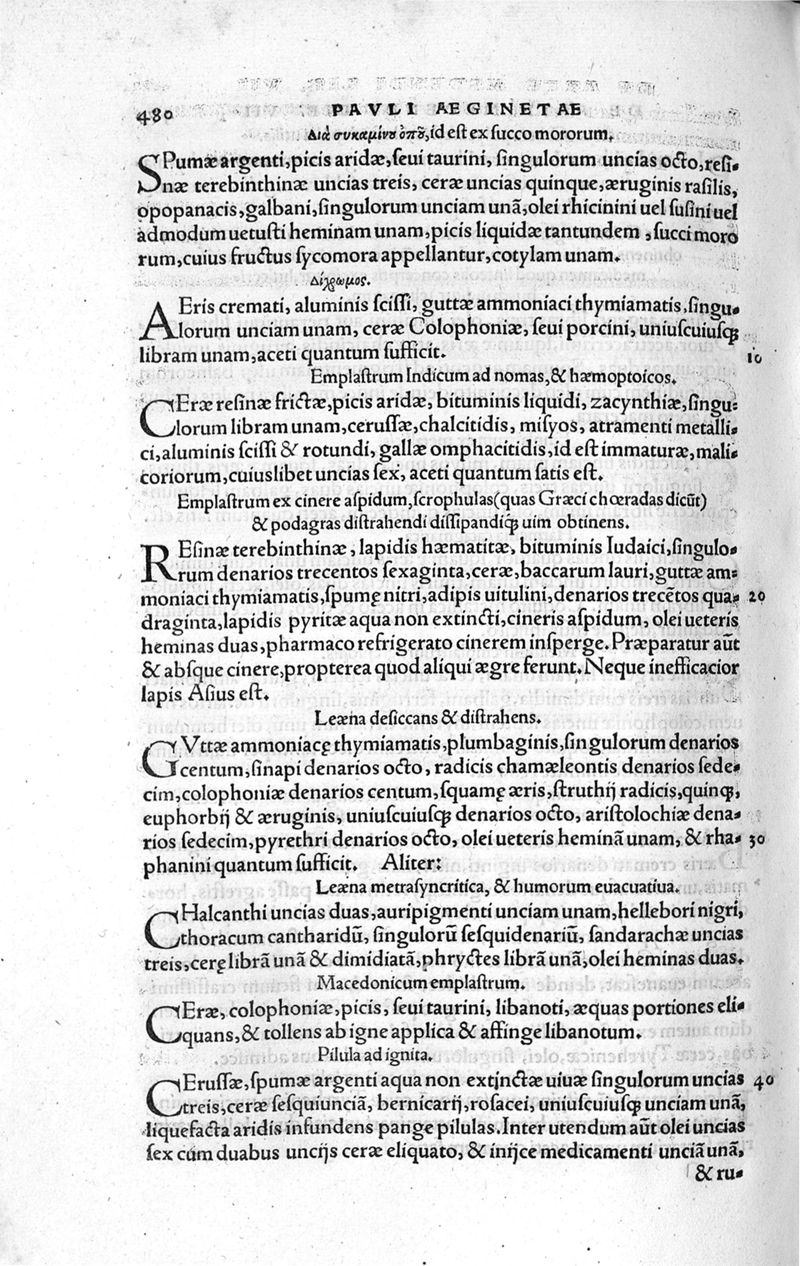 480 PAVLI AEGINETAE
Διὰ συκαμίνου ὀποῦ, id est ex succo mororum.
SPumæ argenti, picis aridæ, ſeui taurini, ſingulorum uncias octo, reſi-
næ terebinthinæ uncias treis, ceræ uncias quinque, æruginis raſilis,
opopanacis, galbani, ſingulorum unciam unã, olei rhicinini uel ſuſini uel
admodum uetuſti heminam unam, picis liquidæ tantundem, ſucci moro
rum, cuius fructus ſycomora appellantur, cotylam unam.
Δίχρωμος.
AEris cremati, aluminis ſciſſi, guttæ ammoniaci thymiamatis, ſingu-
lorum unciam unam, ceræ Colophoniæ, ſeui porcini, uniuſcuiuſq;
libram unam, aceti quantum ſufficit. 10
Emplaſtrum Indicum ad nomas, & hæmoptoicos.
CEræ reſinæ frictæ, picis aridæ, bituminis liquidi, zacynthiæ, ſingu-
lorum libram unam, ceruſſæ, chalcitidis, miſyos, atramenti metalli-
ci, aluminis ſciſſi & rotundi, gallæ omphacitidis, id eſt immaturæ, mali-
coriorum, cuiuslibet uncias ſex, aceti quantum ſatis eſt.
Emplaſtrum ex cinere aſpidum, ſcrophulas (quas Græci chœradas dicũt)
& podagras diſtrahendi diſſipandiq; uim obtinens.
REſinæ terebinthinæ, lapidis hæmatitæ, bituminis Iudaici, ſingulo-
rum denarios trecentos ſexaginta, ceræ, baccarum lauri, guttæ am-
moniaci thymiamatis, ſpumę nitri, adipis uitulini, denarios trecẽtos qua- 20
draginta, lapidis pyritæ aqua non extincti, cineris aſpidum, olei ueteris
heminas duas, pharmaco refrigerato cinerem inſperge. Præparatur aũt
& abſque cinere, propterea quod aliqui ægre ferunt. Neque inefficacior
lapis Aſius eſt.
Leæna deſiccans & diſtrahens.
GVttæ ammoniacę thymiamatis, plumbaginis, ſingulorum denarios
centum, ſinapi denarios octo, radicis chamæleontis denarios ſede-
cim, colophoniæ denarios centum, ſquamę æris, ſtruthij radicis, quinq;,
euphorbij & æruginis, uniuſcuiuſq; denarios octo, ariſtolochiæ dena-
rios ſedecim, pyrethri denarios octo, olei ueteris heminã unam, & rha- 30
phanini quantum ſufficit. Aliter:
Leæna metraſyncritica, & humorum euacuatiua.
CHalcanthi uncias duas, auripigmenti unciam unam, hellebori nigri,
thoracum cantharidũ, ſingulorũ ſeſquidenariũ, ſandarachæ uncias
treis, cerę librã unã & dimidiatã, phryctes librã unã, olei heminas duas.
Macedonicum emplaſtrum.
CEræ, colophoniæ, picis, ſeui taurini, libanoti, æquas portiones eli-
quans, & tollens ab igne applica & affinge libanotum.
Pilula ad ignita.
CEruſſæ, ſpumæ argenti aqua non extinctæ uiuæ ſingulorum uncias 40
treis, ceræ ſeſquiunciã, bernicarij, roſacei, uniuſcuiuſq; unciam unã,
liquefacta aridis infundens pange pilulas. Inter utendum aũt olei uncias
ſex cùm duabus uncijs ceræ eliquato, & inijce medicamenti unciã unã,
& ru-